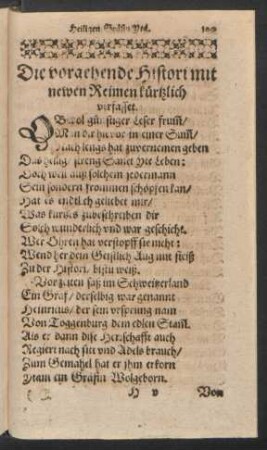 Heiligen Gräfin Yta. 109
Die vorgehende Histori mit
newen Reimen kürtzlich
verfasset.
OBwol günstiger Leser frumm/
Man dir hievor in einer Summ/
Nach lengs hat zuvernemen geben
Das heilig/ streng Sanct Itæ Leben:
Doch weil auß solchem jederman̄
Sein sondern frommen schöpfen kan/
Hat es endtlich geliebet mir/
Was kurtzes zubeschreiben dir
Solch wunderlich und war geschicht.
Wer Ohren hat verstopff sie nicht:
Wend her dein Geistlich Aug mit fleiß
Zu der Histori, bistu weiß.
Vorzeiten saß im Schweitzerland
Ein Graf/ derselbig war genannt
Heinricus/ der sein vrsprung nam
Von Toggenburg dem edlen Stam̄.
Als er dann dise Herschafft auch
Regiert nach sitt und Adels brauch/
Zum Gemahel hat er jhm erkorn
Itam ein Gräfin Wolgeborn.
H v Von